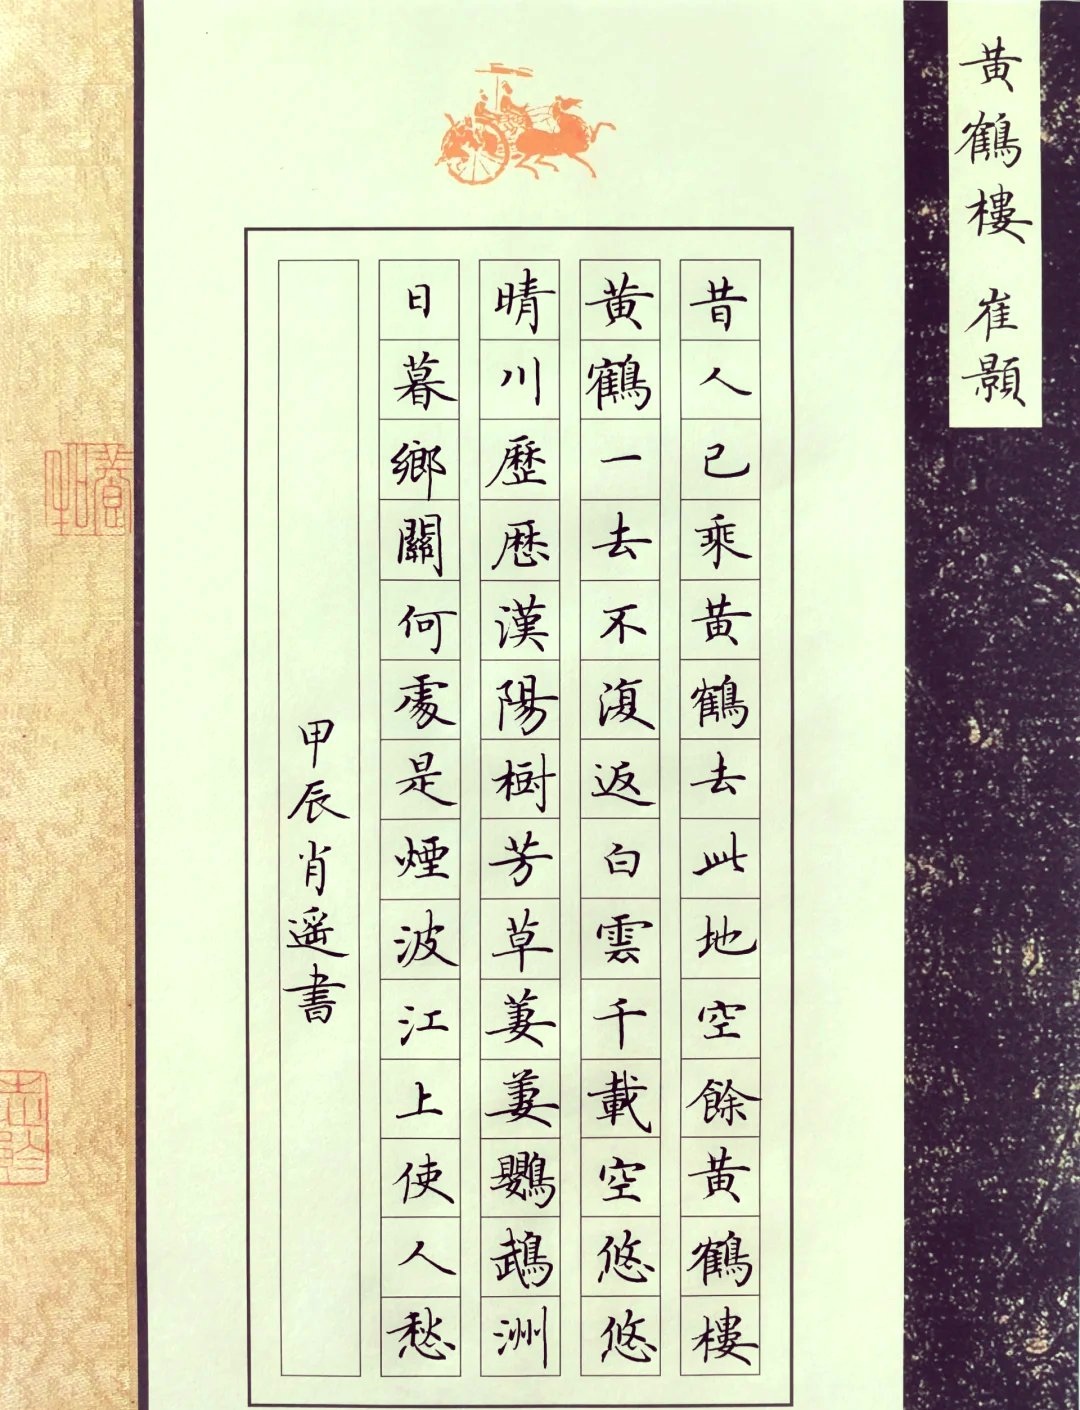 黄鶴樓 崔顥
昔人已乘黄鶴去此地空餘黄鶴樓
黄鶴一去不復返白雲千載空悠悠
晴川歷歷漢陽樹芳草萋萋鸚鵡洲
日暮鄉關何處是煙波江上使人愁
甲辰肖遥書